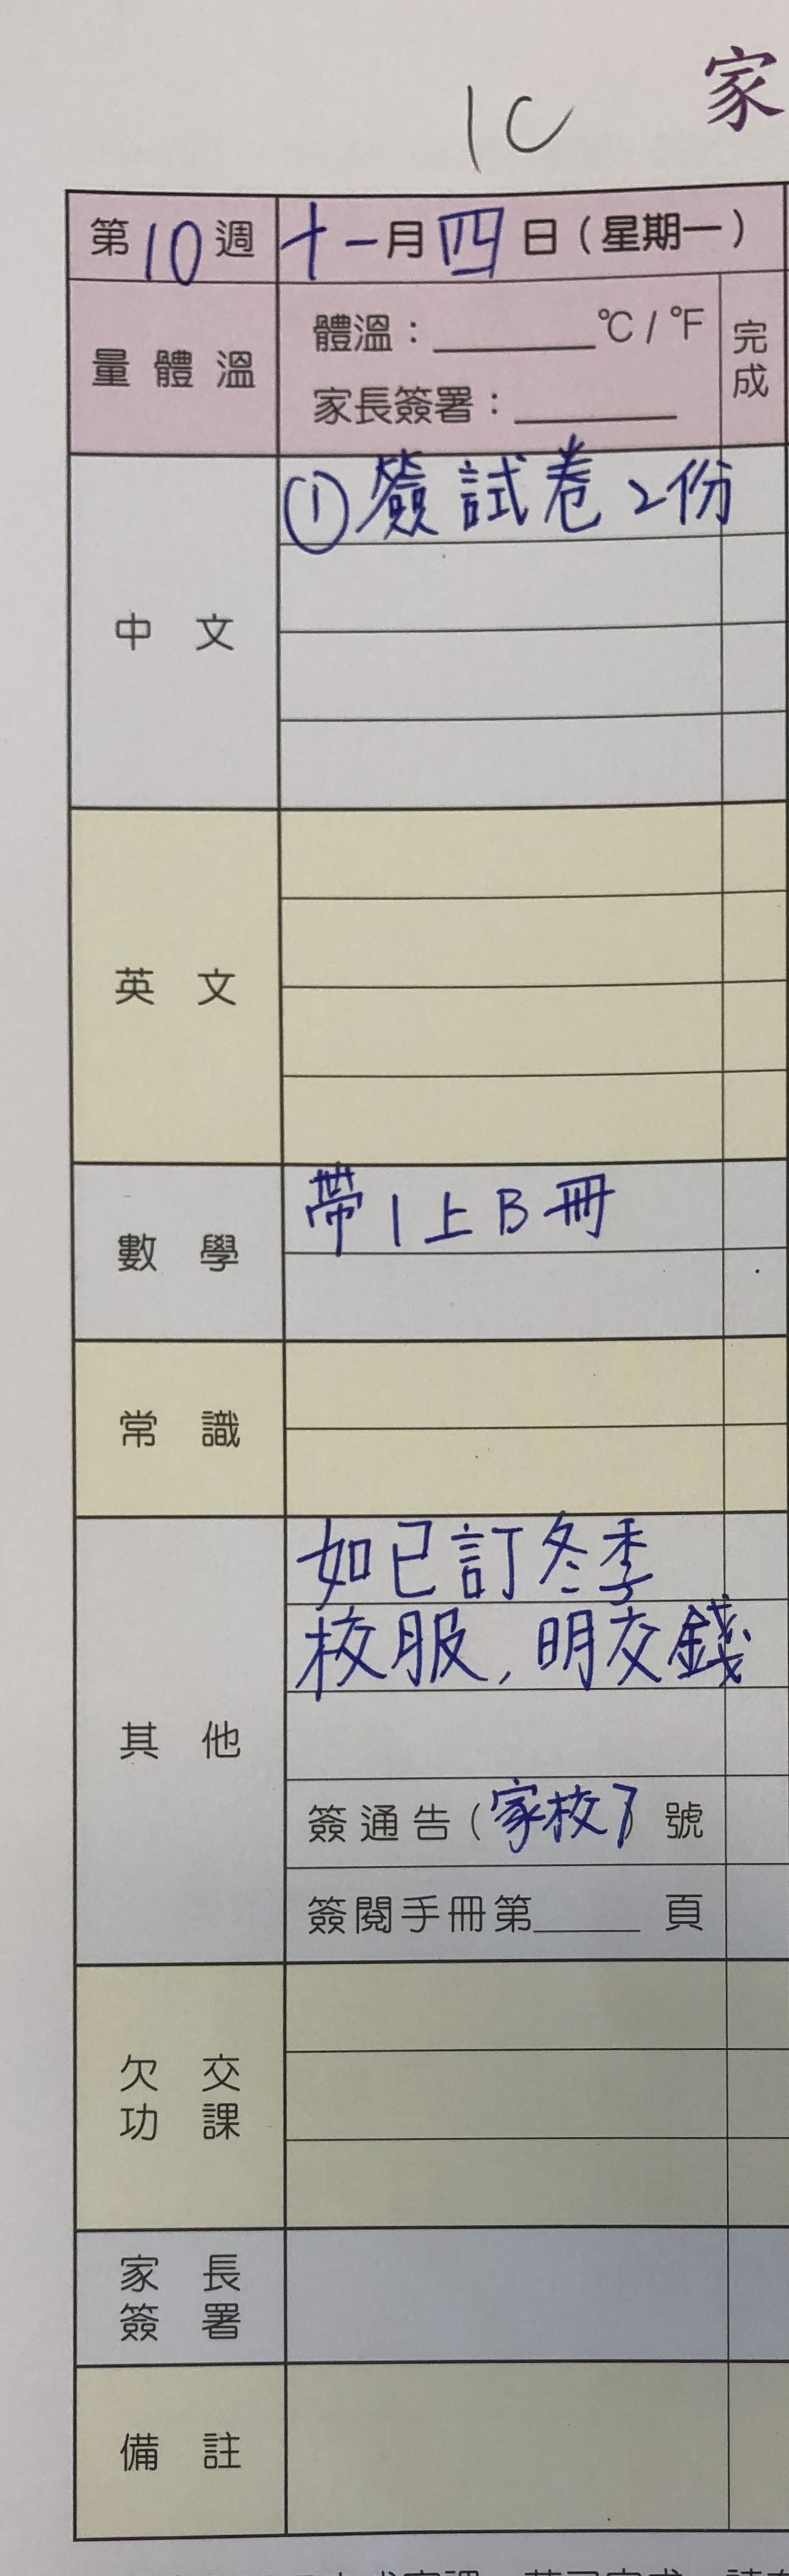 1C
家
第10週 十一月四日（星期一）
量體溫 體溫：______°C / °F
家長簽署：______
完成
中文 ①簽試卷2份
英文
數學 帶1上B冊
常識
其他 如已訂冬季
校服，明交錢
簽通告（家校7）號
簽閱手冊第____頁
欠交
功課
家長
簽署
備註